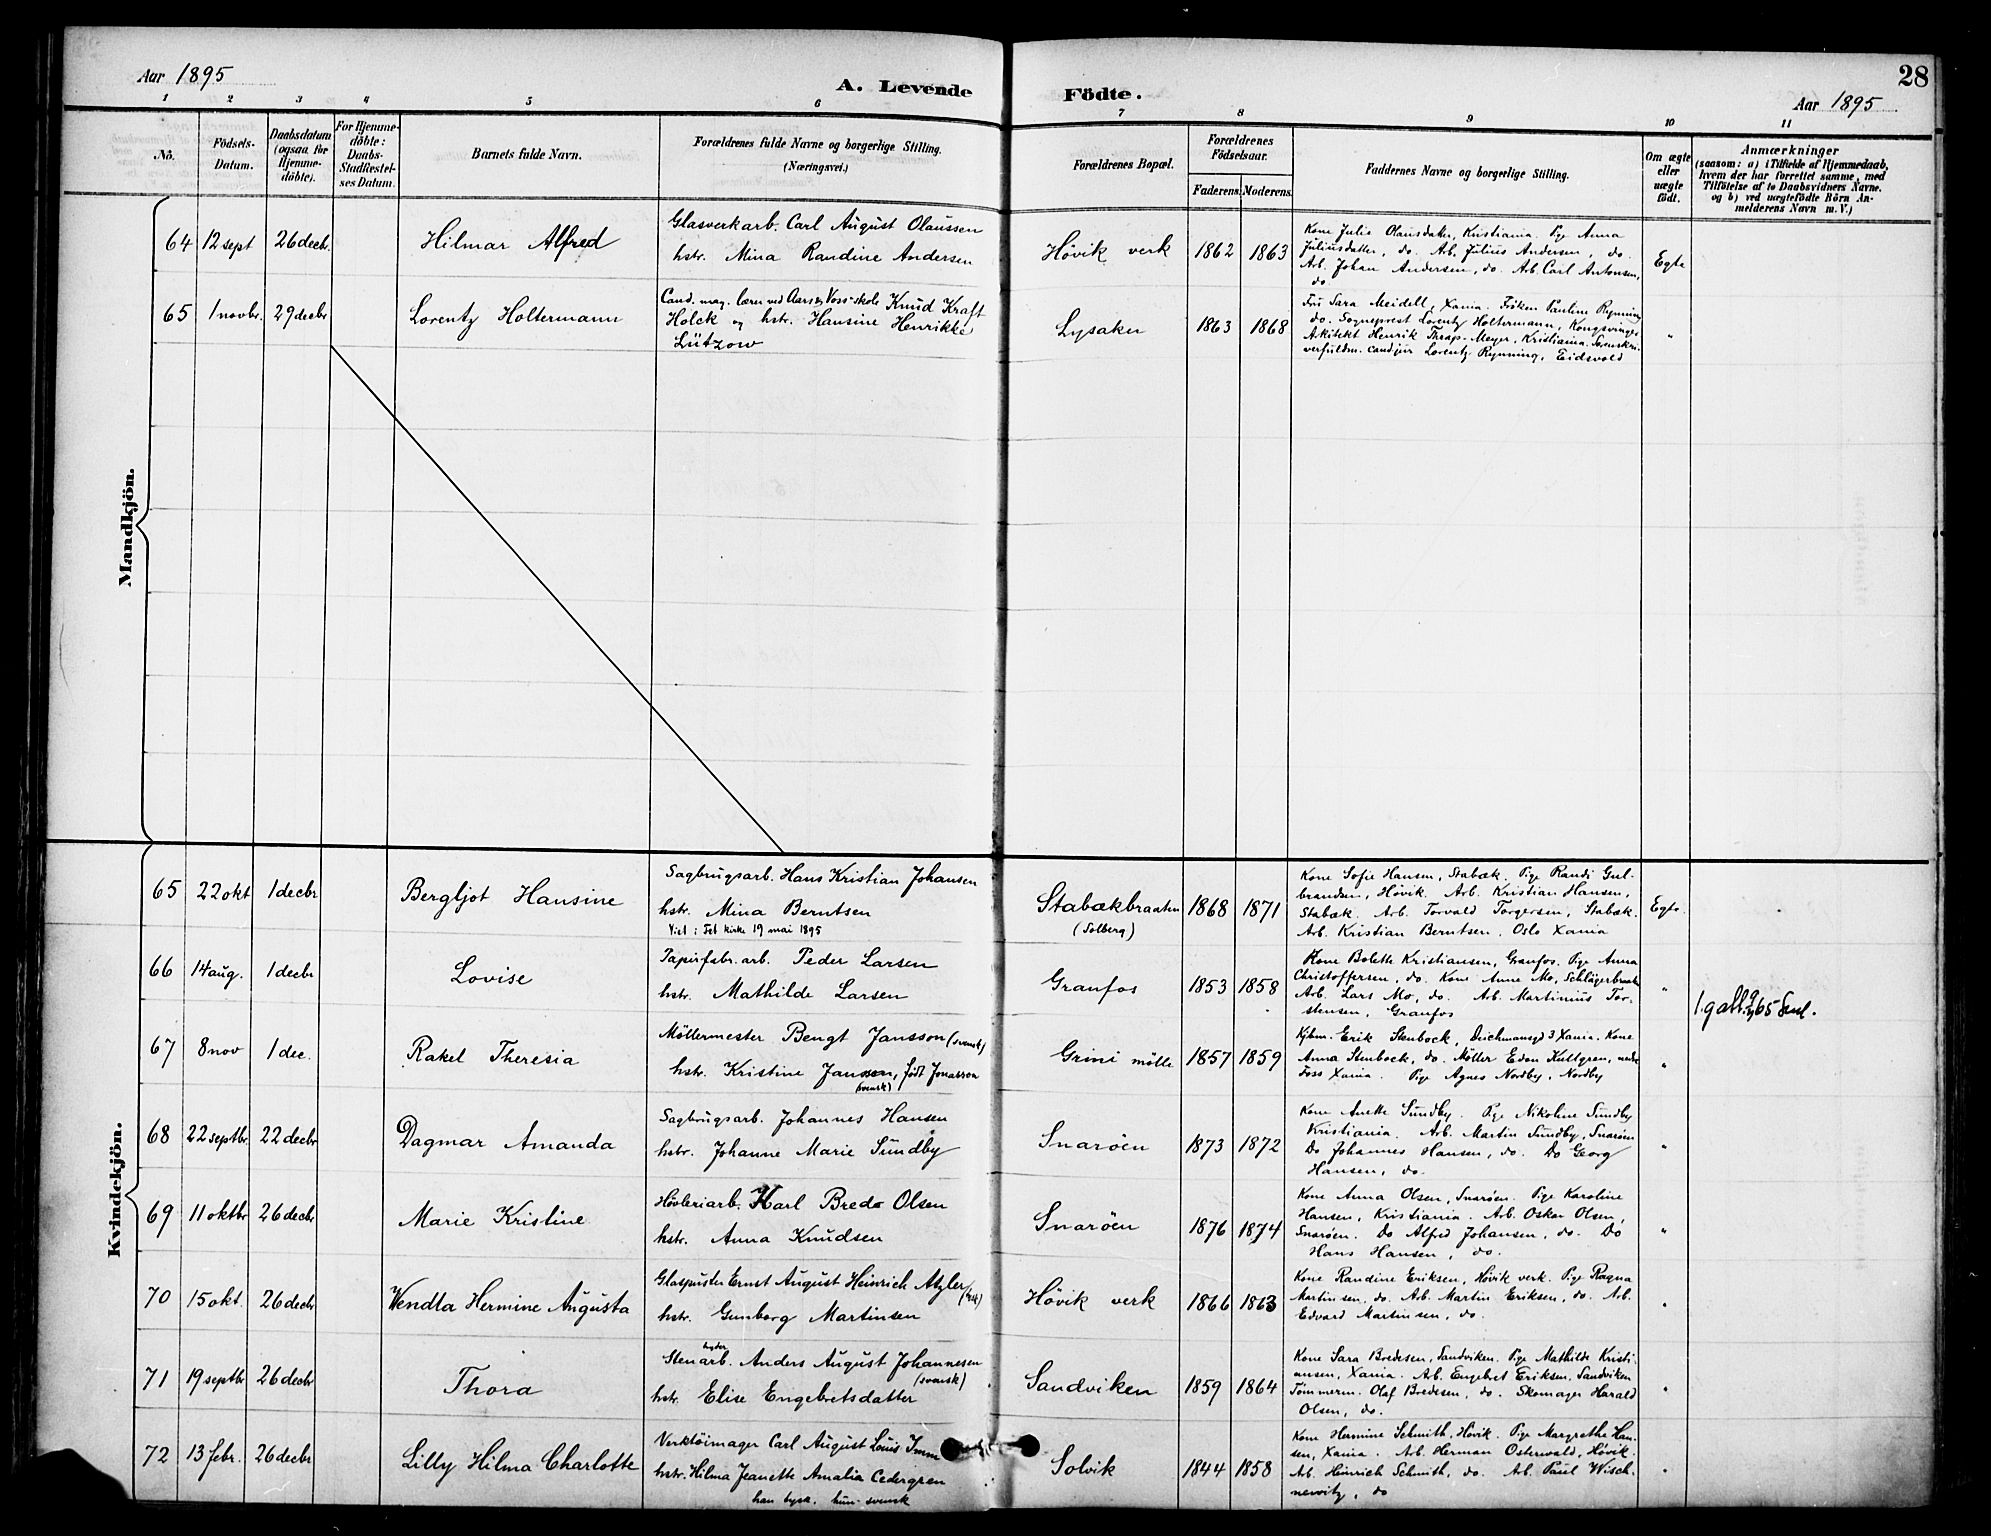 Aar 1895
A. Levende
Födte.
28
Aar 1895
1 2 3 4 5 6 7 8 9 10 11
No.
Födsels-
Datum.
Daabsdatum
(ogsaa for
Hjemme-
döbte).
For Hjemme-
döbte:
Daabs-
Stadfæstel-
ses Datum.
Barnets fulde Navn.
Forældrenes fulde Navne og borgerlige Stilling.
(Næringsvei.)
Forældrenes Bopæl.
Forældrenes
Födselsaar.
Faderens. Moderens.
Faddernes Navne og borgerlige Stilling.
Om ægte
eller
uægte
födt.
Anmærkninger
(saasom: a) i Tilfælde af Hjemmedaab,
hvem der har forrettet samme, med
Tilföielse af to Daabsvidners Navne.
og b) ved uægtefödte Börn An-
melderens Navn m. V.)
Mandkjön.
64 12 sept 26 decbr.
Hilmar Alfred
Glasverkarb. Carl August Olaussen
hstr. Mina Randine Andersen
Høvik verk 1862 1863
Kone Julie Olausdatter, Kristiania. Pige Anna
Juliusdatter, do. Arb. Julius Andersen, do.
Arb. Johan Andersen, do. Arb. Carl Antonsen,
do.
Egte
65 1 novbr. 29 decbr
Lorentz Holtermann
Cand. mag. lærer ved Aars & Voss' skole Knud Kraft
Holck og hstr. Hansine Henrikke
Lützow
Lysaker 1863 1868
Fru Sara Meidell, Xania. Frøken Pauline Rynning
do. Sogneprest Lorentz Holtermann, Kongsvinger
Arkitekt Henrik Thrap-Meyer, Kristiania. Sorenskri-
verfuldm. cand jur Lorentz Rynning, Eidsvold
"
Kvindekjön.
65 22 okt 1 decbr
Bergljot Hansine
Sagbrugsarb. Hans Kristian Johansen
hstr. Mina Berntsen
Viet i Fet kirke 19 mai 1895
Stabækbraaten
(Solberg)
1868 1871
Kone Sofie Hansen, Stabæk. Pige Randi Gul-
brandsen, Høvik. Arb. Kristian Hansen,
Stabæk. Arb. Torvald Torgersen, Stabæk.
Arb. Kristian Berntsen, Oslo Xania
Egte.
66 14 aug. 1 decbr
Lovise
Papirfabr. arb. Peder Larsen
hstr. Mathilde Larsen
Granfos 1853 1858
Kone Bolette Kristiansen, Granfos. Pige Anna
Christoffersen, do. Kone Anne Mo, Schlägerbraaten
Arb. Lars Mo, do. Arb. Martinius Tor-
stensen, Granfos
"
67 8 nov 1 dec.
Rakel Theresia
Möllermester Bengt Jansson (svensk)
hstr. Kristine Janssen, födt Jonasson
(svensk)
Grini mölle 1857 1859
Kjbm. Erik Stenbock, Deichmansgd 3 Xania. Kone
Anna Stenbock, do. Möller Edon Kullgren, nedre
Foss Xania. Pige Agnes Nordby, Nordby
"
68 22 septbr. 22 decbr
Dagmar Amanda
Sagbrugsarb. Johannes Hansen
hstr. Johanne Marie Sundby
Snaröen 1873 1872
Kone Anette Sundby. Pige Nikoline Sundby
Kristiania. Arb. Martin Sundby, Snaröen
Do Johannes Hansen, do. Do Georg
Hansen, do.
"
69 11 oktbr 26 decbr
Marie Kristine
Hövleriarb. Karl Bredo Olsen
hstr. Anna Knudsen
Snaröen 1876 1874
Kone Anna Olsen, Snaröen. Pige Karoline
Hansen, Kristiania. Arb. Oskar Olsen,
Snaröen. Do Alfred Johansen, do. Do
Hans Hansen, do.
"
70 15 okt. 26 decbr
Wendla Hermine Augusta
Glaspuster Ernst August Heinrich Atzler (tysk)
hstr. Gunborg Martinsen
Høvik verk 1866 1863
Kone Randine Eriksen, Høvik verk. Pige Ragna
Martinsen, do. Arb. Martin Eriksen, do. Arb.
Edvard Martinsen, do.
"
71 19 septbr 26 decbr
Thora
Stenarb. Anders August Johannesen
(svensk)
hstr. Elise Engebretsdatter
Sandviken 1859 1864
Kone Sara Bredesen, Sandviken. Pige Mathilde Kristi-
ansen, Xania. Arb. Engebret Eriksen, Sandviken
Tömmerm. Olaf Bredesen, do. Skomager Harald
Olsen, do.
"
72 13 febr. 26 decbr
Lilly Hilma Charlotte
Verktöimager Carl August Louis
hstr. Hilma Jeanette Amalia Cedergren
han tysk. hun svensk
Solvik 1844 1858
Kone Hermine Schmith, Høvik. Pige Margrethe Han-
sen, Xania. Arb. Herman Osterwald, Høvik.
Arb. Heinrich Schmith, do. Arb. Paul Wisch-
newitz, do
"